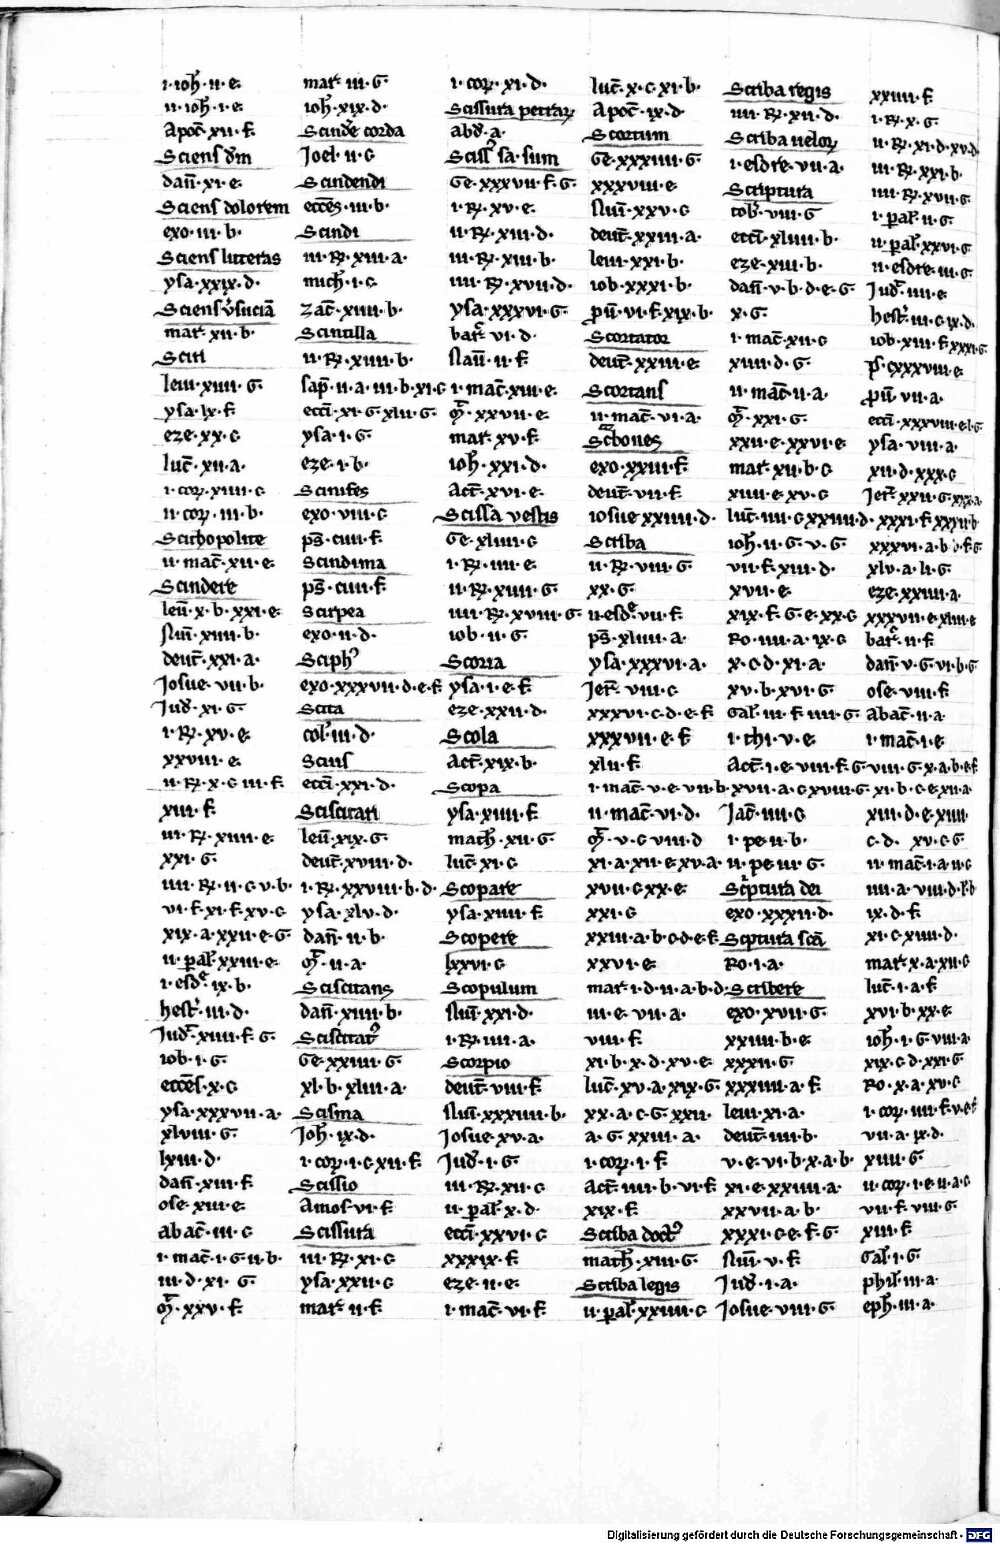 i·ioh̄·ii·e·
ii·ioh̄·i·e·
Apoc̄·xii·f·
Sciens dm̄
dan̄·xi·e·
Sciens dolorem
exo·iii·b·
Sciens litteras
ysa·xxix·d·
mat᷑·xii·b·
Sciri
leui·xiiii·G·
ysa·lx·f·
eze·xx·c·
luc̄·xii·a·
i·cor·xiiii·c
ii·cor·iii·b·
Scithopolite
ii·mac̄·xii·e·
Scindere
leu̅·x·b·xxi·e·
nuū·xiiii·b·
deut̄·xxi·a·
Josue·vii·b·
Jud̄·xi·G·
i·R·xv·e·
xxviii·e·
ii·R·x·c·iii·f·
xiii·f·
iii·R·xiiii·e·
xxi·G·
iiii·R·ii·c·v·b·
vi·f·xi·f·xv·c
xix·a·xxii·e·G·
ii·pal̄·xxiii·e·
i·esd·ix·b·
hest᷑·iii·d·
Jud᷑·xiiii·f·G·
iob·i·G·
eccēs·x·c
ysa·xxxvii·a·
xlviii·G·
lxiii·d·
dan̄·xiii·f·
ose·xiii·e·
abac̄·iii·c
i·mac̄·i·G·ii·b·
iii·d·xi·G·
xxv·f·
mat᷑·iii·G·
ioh̄·xix·d·
Scinde corda
Joel·ii·c
Scindendi
eccēs·iii·b·
Scindi
iii·R·xiii·a·
mich̄·i·c
zac̄·xiiii·b·
Scintilla
ii·R·xiiii·b·
sap̄·ii·a·iii·b·xi·c
ecc̄i·xi·G·xlii·G·
ysa·i·G·
eze·i·b·
Scinifes
exo·viii·c
ps̄·ciiii·f·
Scindima
ps̄·ciiii·f·
Scirpea
exo·ii·d·
Sciph᷑
exo·xxxvii·d·e·f
Scita
col᷑·iii·d·
Scius
ecc̄i·xxi·d·
Sciscitari
leu̅·xix·G·
deut̄·xviii·d·
i·R·xxviii·b·d·
ysa·xlv·d·
dan̄·ii·b·
ii·a·
Sciscitans
dan̄·xiiii·b·
Sciscitat᷑
Ge·xxiiii·G·
xl·b·xliii·a·
Scisma
Joh̄·ix·d·
i·cor·i·c·xii·f·
Scissio
Amos·vi·f·
Scissura
iii·R·xi·c
ysa·xxii·c
mat᷑·ii·f·
i·cor·xi·d·
Scissura petrar
abd̄·a·
Sciss᷑ sa·sum
Ge·xxxvii·f·G·
i·R·xv·e·
ii·R·xiii·d·
iii·R·xiii·b·
iiii·R·xvii·d·
ysa·xxxvi·G·
bar᷑·vi·d·
nau̅·ii·f·
i·mac̄·xiii·e·
xxvii·e·
mat᷑·xv·f·
ioh̄·xxi·d·
Act̄·xvi·e·
Scissa vestis
Ge·xliiii·c
i·R·iiii·e·
ii·R·xiii·G·
iiii·R·xviii·G·
iob·ii·G·
Scoria
ysa·i·e·f·
eze·xxii·d·
Scola
Act̄·xix·b·
Scopa
ysa·xiiii·f·
math̄·xii·G·
luc̄·xi·c
Scopare
ysa·xiiii·f·
Scopere
lxxvi·c
Scopulum
nuū·xxi·d·
i·R·iiii·a·
Scorpio
deut̄·viii·f·
nuū·xxxiiii·b·
Josue·xv·a·
Jud̄·i·G·
iii·R·xii·c
ii·pal̄·x·d·
ecc̄i·xxvi·c
xxxix·f·
eze·ii·e·
i·mac̄·vi·f·
luc̄·x·c·xi·b·
Apoc̄·ix·d·
Scortum
Ge·xxxiiii·G·
xxxviii·e·
nuū·xxv·c
deut̄·xxiii·a·
leui·xxi·b·
iob·xxxi·b·
pu̅·vi·f·xix·b·
Scortator
deut̄·xxiii·e·
Scortans
ii·mac̄·vi·a·
exo·xxiii·f·
deut̄·vii·f·
iosue·xxiiii·d·
Scriba
ii·R·viii·G·
xx·G·
ii·esd·vii·f·
ps̄·xliiii·a·
ysa·xxxvi·a·
Jer᷑·viii·c
xxxvi·c·d·e·f·
xxxvii·e·f·
xlii·f·
i·mac̄·v·e·vii·b·
ii·mac̄·vi·d·
v·c·viii·d
xi·a·xii·e·xv·a·
xvii·c·xx·e·
xxi·c
xxiii·a·b·c·d·e·f·
xxvi·e·
mar᷑·i·d·ii·a·b·d·
iii·e·vii·a·
viii·f·
xi·b·x·d·xv·e·
luc̄·xv·a·xix·G·
xx·a·c·G·xxii·
a·G·xxiii·a·
i·cor·i·f·
Act̄·iiii·b·vi·f·
xix·f·
Scriba doct᷑
math̄·xiii·G·
Scriba legis
ii·pal̄·xxiiii·c
Scriba regis
iiii·R·xii·d·
Scriba uelor
i·esdre·vii·a·
Scriptura
tob᷑·viii·G
ecc̄i·xliiii·b·
eze·xiii·b·
dan̄·v·b·d·e·G·
x·G·
i·mac̄·xii·c
xiiii·d·G·
ii·mac̄·ii·a·
xxi·G·
xxii·e·xxvi·e·
mat᷑·xii·b·c
xiiii·e·xv·c
luc̄·iiii·c·xxiiii·d·
ioh̄·ii·G·v·G·
vii·f·xiii·d·
xvii·e·
xix·f·G·e·xx·c
Ro·iiii·a·ix·c
x·c·d·xi·a·
xv·b·xvi·G·
Gal᷑·iii·f·iiii·G·
i·thi·v·e·
Act̄·i·e·viii·f·G·
xvii·a·c·xviii·G·
Jac̄·iiii·c
i·pe·ii·b·
ii·pe·iii·G·
Scptura dei
exo·xxxii·d·
Scptura scā
Ro·i·a·
Scribere
exo·xvii·G·
xxiiii·b·e·
xxxii·G·
xxxiiii·a·f·
leui·xi·a·
deut̄·iiii·b·
v·e·vi·b·x·a·b·
xi·e·xxiiii·a·
xxvii·a·b·
xxxi·c·e·f·G·
nuū·v·f·
Jud̄·i·a·
Josue·viii·G·
xxiiii·f·
i·R·x·G·
ii·R·xi·d·xv·d·
iii·R·xxi·b·
iiii·R·xvii·G·
i·pal᷑·ii·G·
ii·pal᷑·xxvi·G
ii·esdre·iii·G·
Jud᷑·iiii·e·
hest᷑·iii·c·ix·d·
iob·xiii·f·xxxi·G·
ps·cxxxviii·e·
pu̅·vii·a·
ecc̄i·xxxviii·e·l·G·
ysa·viii·a·
xii·d·xxx·c
Jer᷑·xxii·G·xxx·a·
xxxi·f·xxxii·b
xlv·a·li·G·
eze·xxiiii·a·
xxxvii·e·xliii·e
bar᷑·ii·f·
dan̄·v·G·vi·b·G
ose·viii·f·
abac̄·ii·a·
i·mac̄·i·e·
viii·G·x·a·b·e·f
xi·b·c·e·xii·a·
xiii·d·e·xiiii·
c·d·xv·c·G·
ii·mac̄·i·a·ii·c
iiii·a·viii·d·f·b
ix·d·f·
xi·c·xiiii·d·
mar᷑·x·a·xii·c
luc̄·i·a·f·
xvi·b·xx·e·
ioh̄·i·G·viii·a·
xix·c·d·xxi·G
Ro·x·a·xv·c
i·cor·iiii·f·v·e·f
vii·a·ix·d·
xiiii·G
ii·cor·i·e·ii·a·c
vii·f·viii·G·
xiii·f
Gal᷑·i·G
phil᷑·iii·a·
eph̄·iii·a·
Digitalisierung gefördert durch die Deutsche Forschungsgemeinschaft - DFG